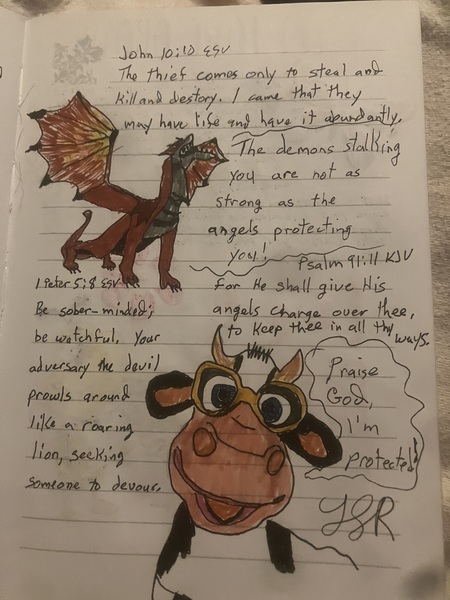 John 10:10 ESV
The thief comes only to steal and
kill and destory. I came that they
may have life and have it abundantly.
The demons stalking
you are not as
strong as the
angels protecting
you!
Psalm 91:11 KJV
for He shall give His
angels charge over thee,
to keep thee in all thy ways.
1 Peter 5:8 ESV
Be sober-minded;
be watchful. Your
adversary the devil
prowls around
like a roaring
lion, seeking
someone to devour.
Praise
God,
I'm
protected!